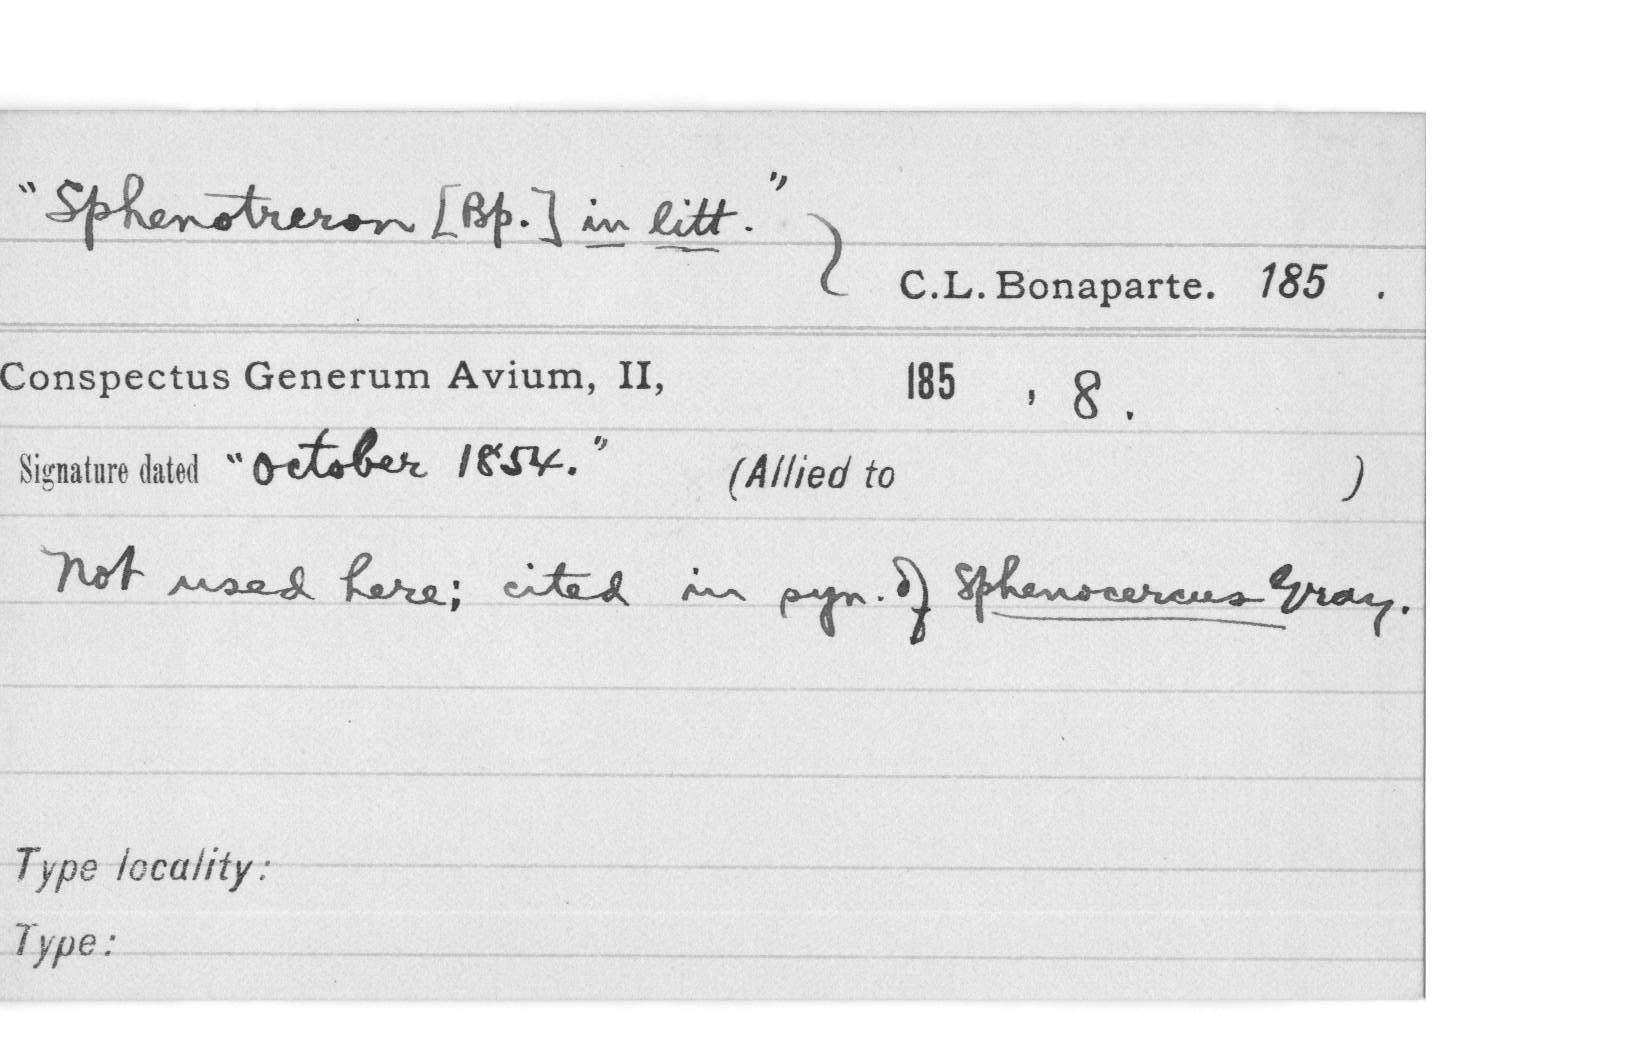 "Sphenotreron [Bp.] in litt."
C.L. Bonaparte. 185 .
Conspectus Generum Avium, II, 185 , 8.
Signature dated "October 1854." (Allied to )
Not used here; cited in syn. of Sphenocercus Gray.
Type locality:
Type: